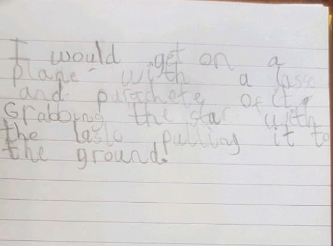 I would get on a
plane with a lasso
and parachete of it,
Grabbing the star with
the laslo pulling it to
the ground.